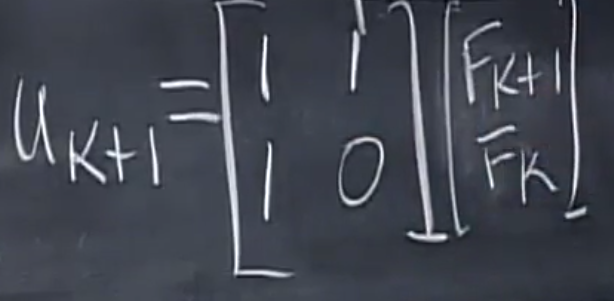 u_{K+1} = \begin{bmatrix} 1 & 1 \\ 1 & 0 \end{bmatrix} \begin{bmatrix} F_{K+1} \\ F_K \end{bmatrix}